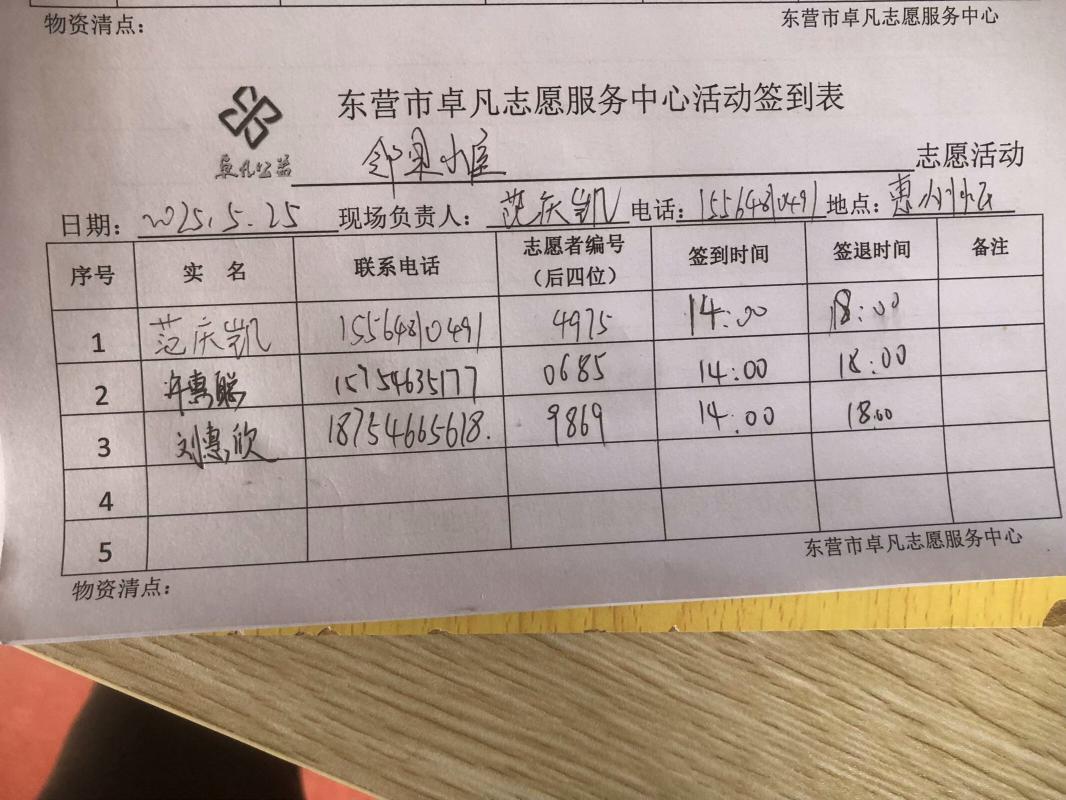 物资清点: 东营市卓凡志愿服务中心
东营市卓凡志愿服务中心活动签到表
卓凡公益 邻里小屋 志愿活动
日期: 2025.5.25 现场负责人: 范庆凯 电话: 15564810491 地点: 惠州社区
序号 实 名 联系电话 志愿者编号(后四位) 签到时间 签退时间 备注
1 范庆凯 15564810491 4975 14:00 18:00
2 许惠聪 15754635177 0685 14:00 18:00
3 刘惠欣 18754665618. 9869 14:00 18:00
4
5
物资清点: 东营市卓凡志愿服务中心